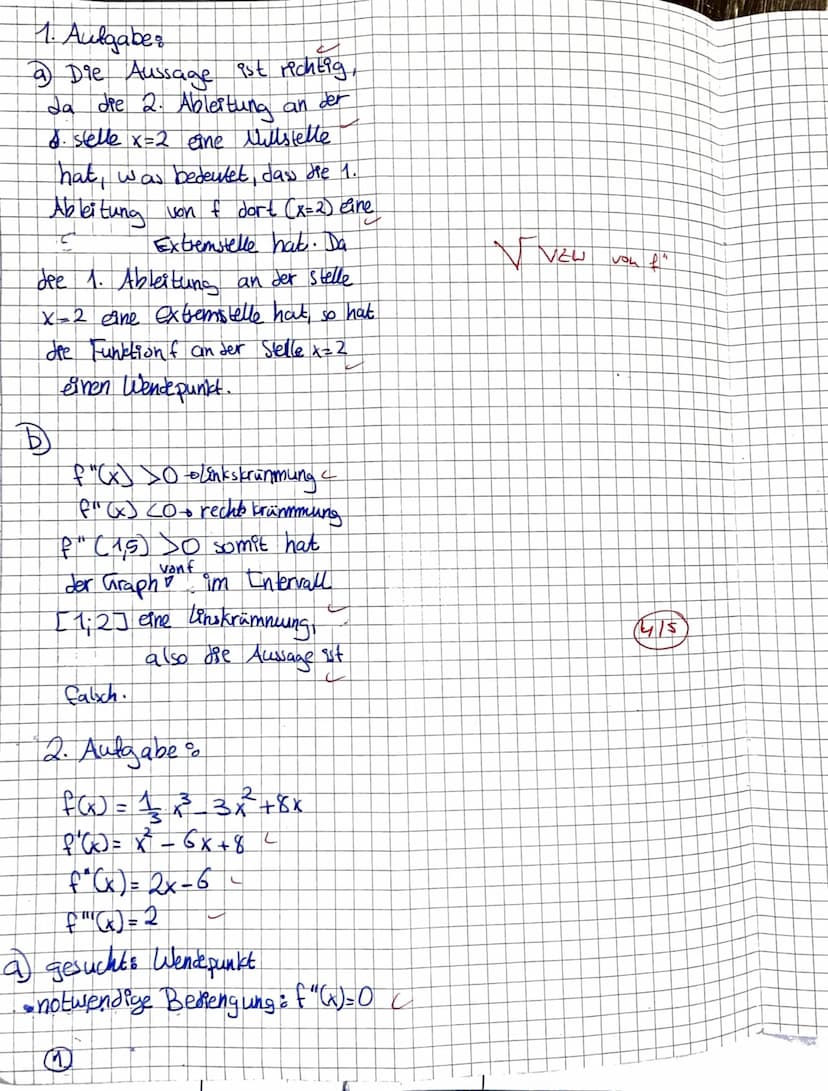 1. Aufgabe:
a) Die Aussage ist richtig,
da die 2. Ableitung an der
stelle x=2 eine Nullstelle
hat, was bedeutet, dass die 1.
Ableitung von f dort (x=2) eine
Extremstelle hat. Da
die 1. Ableitung an der stelle
x=2 eine extremstelle hat, so hat
√ VZW von f"
die Funktion f an der Stelle x=2
einen Wendepunkt.
b)
f"(x) >0 → Linkskrümmung
f"(x) <0 → rechtskrümmung
f"(1,5) >0 somit hat
der Graph von f im Intervall
[1;2] eine Linskrümnung,
also die Aussage ist
falsch.
4/5
2. Aufgabe:
f(x) = 1/3 x³ - 3x² + 8x
f'(x) = x² - 6x + 8
f"(x) = 2x - 6
f'''(x) = 2
a) gesucht: Wendepunkt
• notwendige Bediengung: f"(x)=0
1